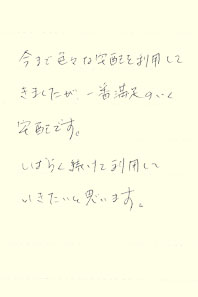 今まで色々な宅配を利用して
きましたが、一番満足のいく
宅配です。
しばらく続けて利用して
いきたいと思います。